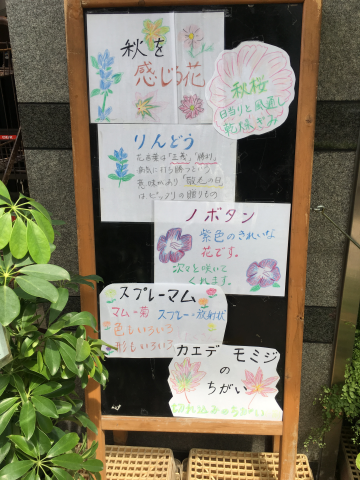 秋を
感じる花
秋桜
日当りと風通し
乾燥ぎみ
りんどう
花言葉は「正義」「勝利」
病気に打ち勝つという
意味があり「敬老の日」
はピッタリの贈りもの
ノボタン
紫色のきれいな
花です。
次々と咲いて
くれます。
スプレーマム
マム→菊 スプレー→放射状
色もいろいろ
形もいろいろ
カエデ モミジ
の
ちがい
切れ込みのちがい